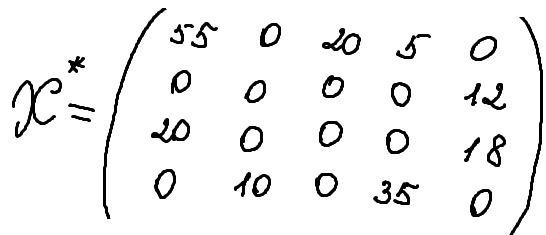 55 0 20 5 0
X* = 0 0 0 0 12
20 0 0 0 18
0 10 0 35 0